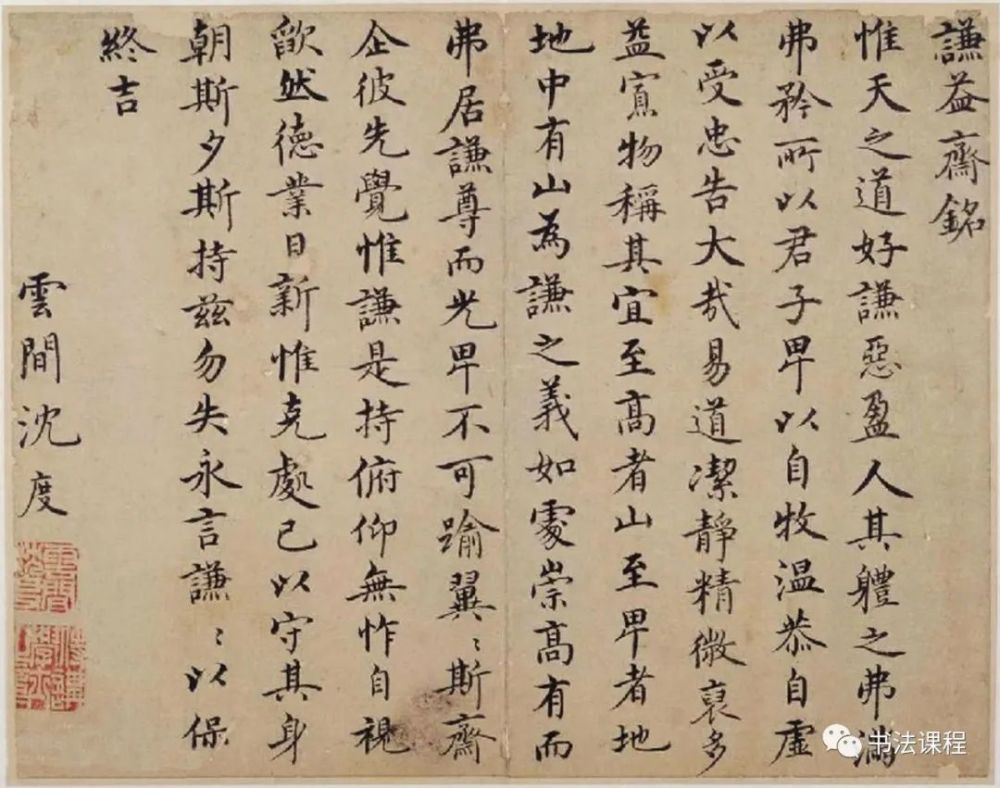 謙益齋銘
惟天之道好謙惡盈人其軆之弗滿
弗矜所以君子卑以自牧温恭自虛
以受忠告大哉易道潔靜精微裒多
益寡物稱其宜至髙者山至卑者地
地中有山為謙之義如處崇髙有而
弗居謙尊而光卑不可踰翼〻斯齋
企彼先覺惟謙是持俯仰無怍自視
歉然徳業日新惟克處己以守其身
朝斯夕斯持兹勿失永言謙〻以保
終吉
雲間沈度
书法课程